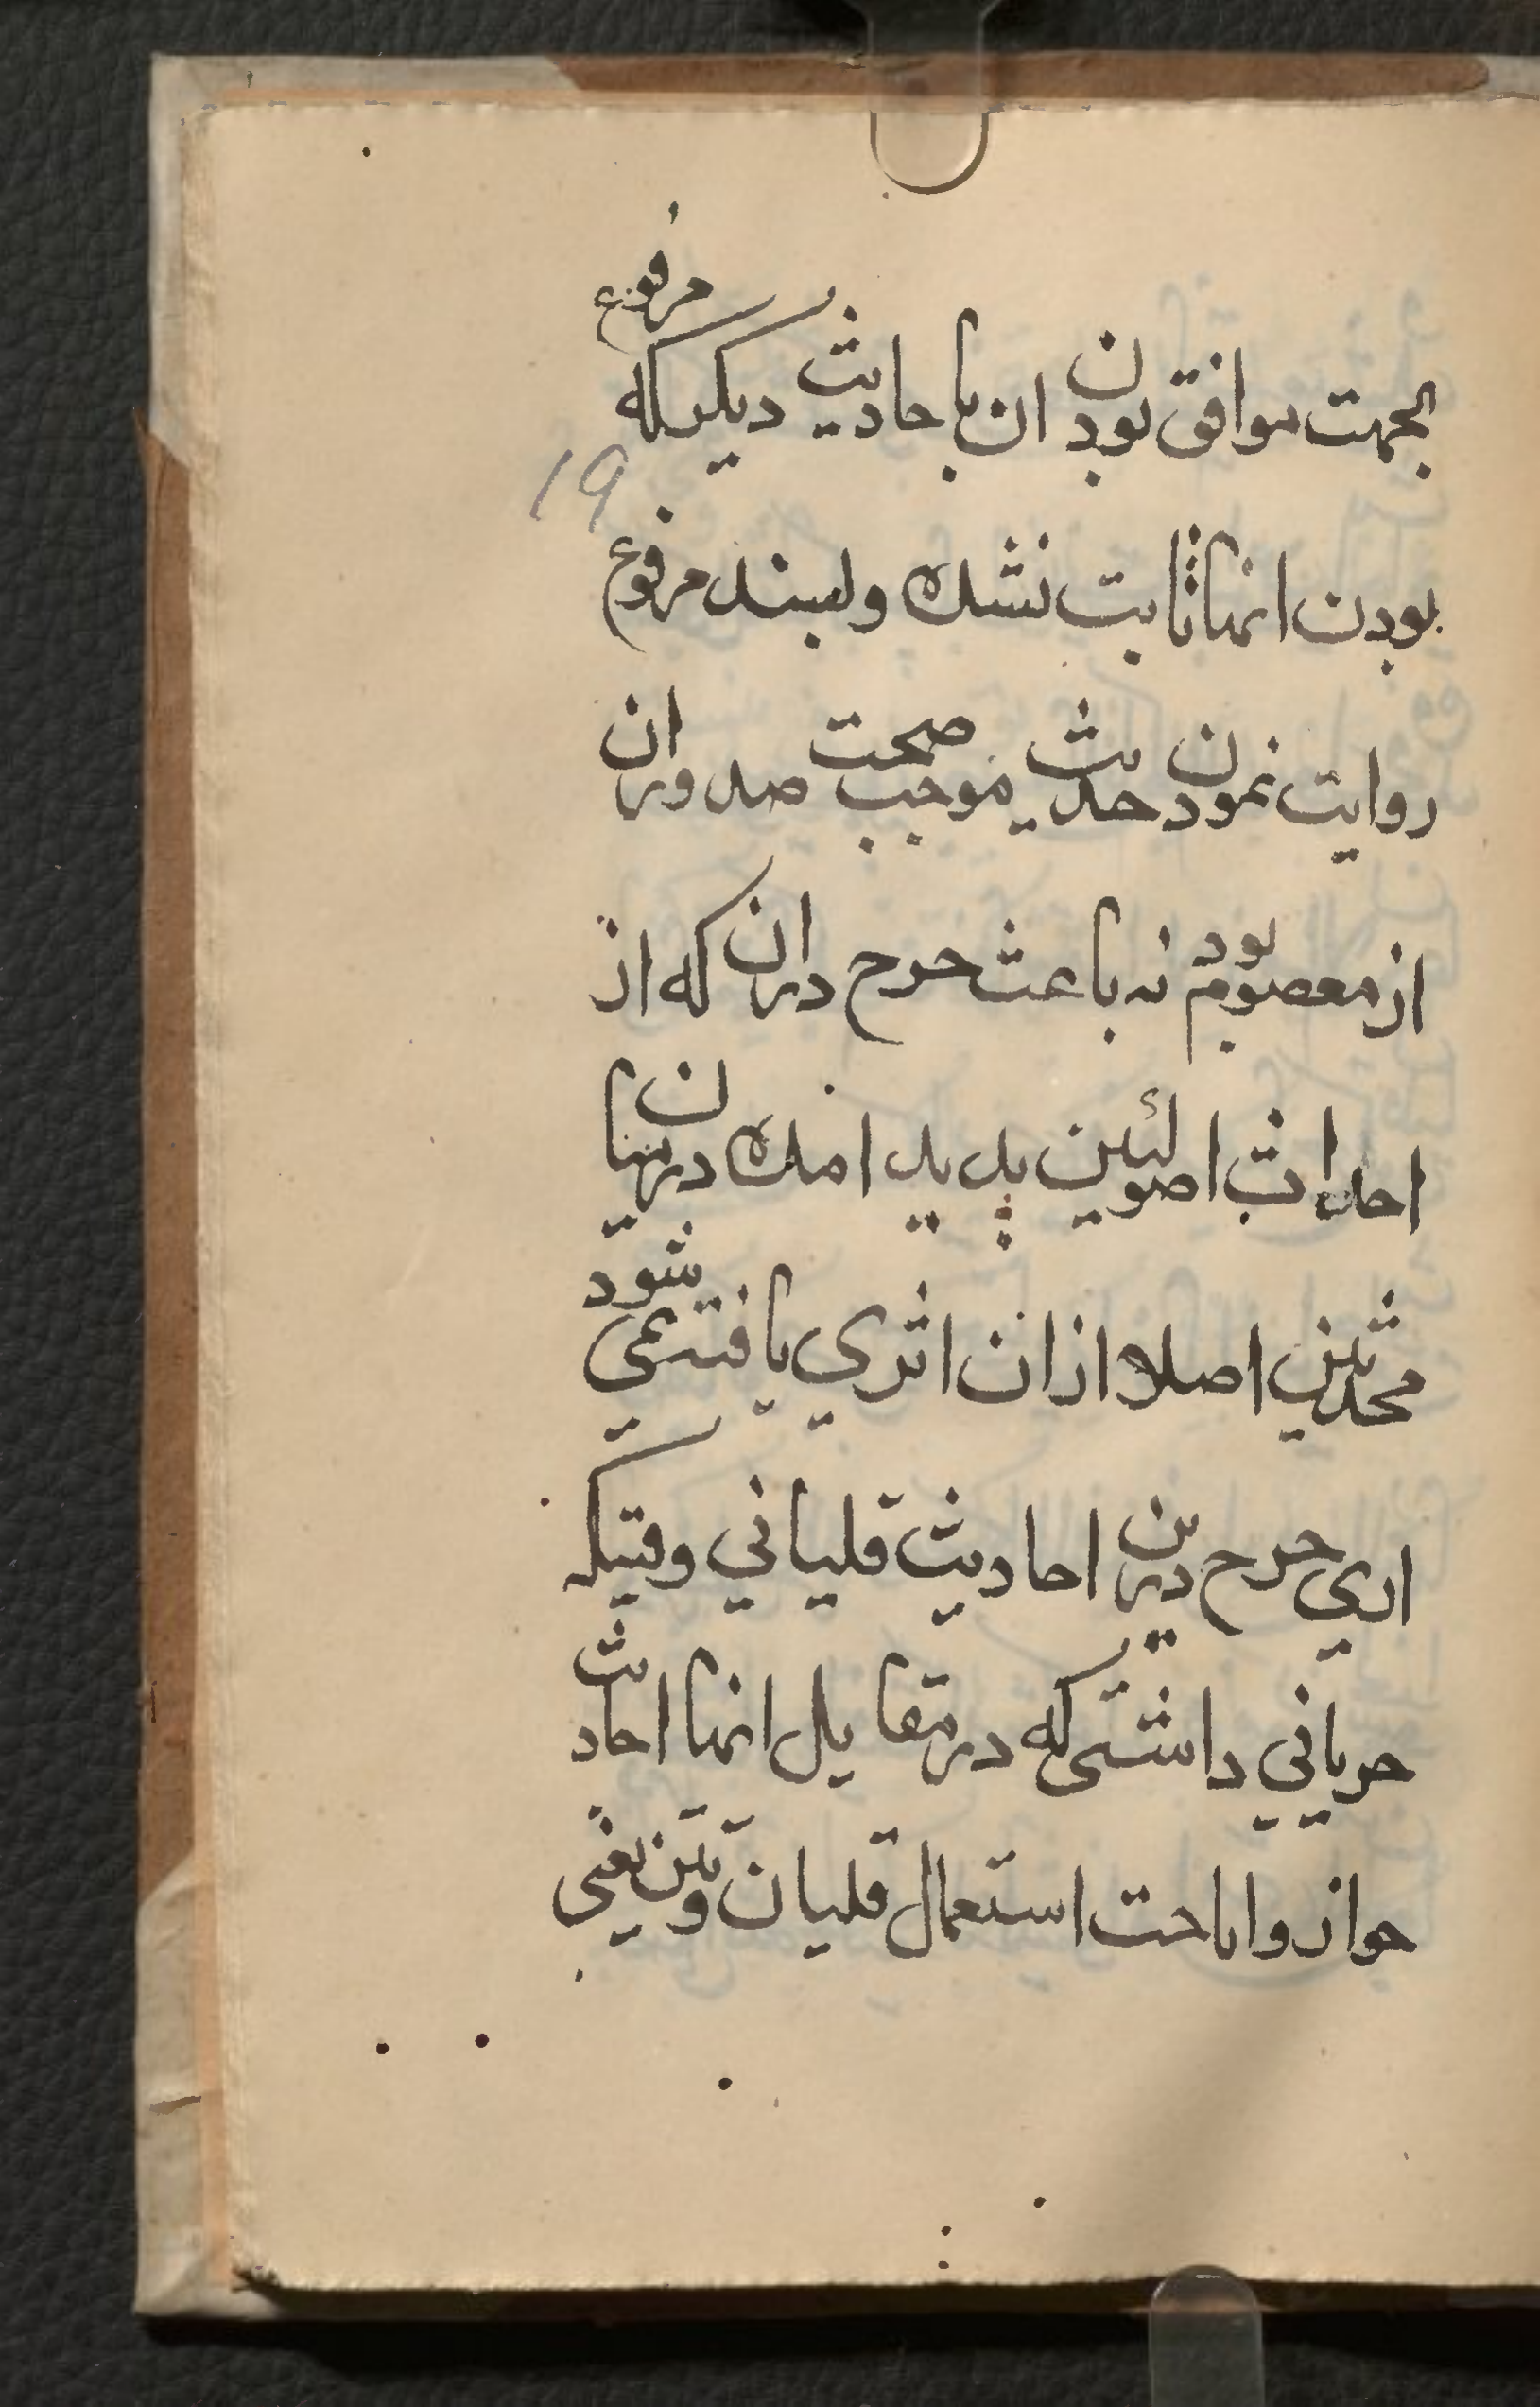 بجهت موافق بودن ان با حادیث دیکر که مرفوع
19
بودن انها ثابت نشده ولسند مرفوع
روایت نمودن حدیث موجب صحت صدوران
از معصوم بود نه باعث حرح دران که از
احداث اصولئین پدید امده درمیان
محدثین اصلا از ان اثری یافت نمی شود
اری حرح درین احادیث قلیانی وقتیکه
حریانی داشتی که در مقابل انها احادیث
جواز واباحت استعمال قلیان وتتن یعنی